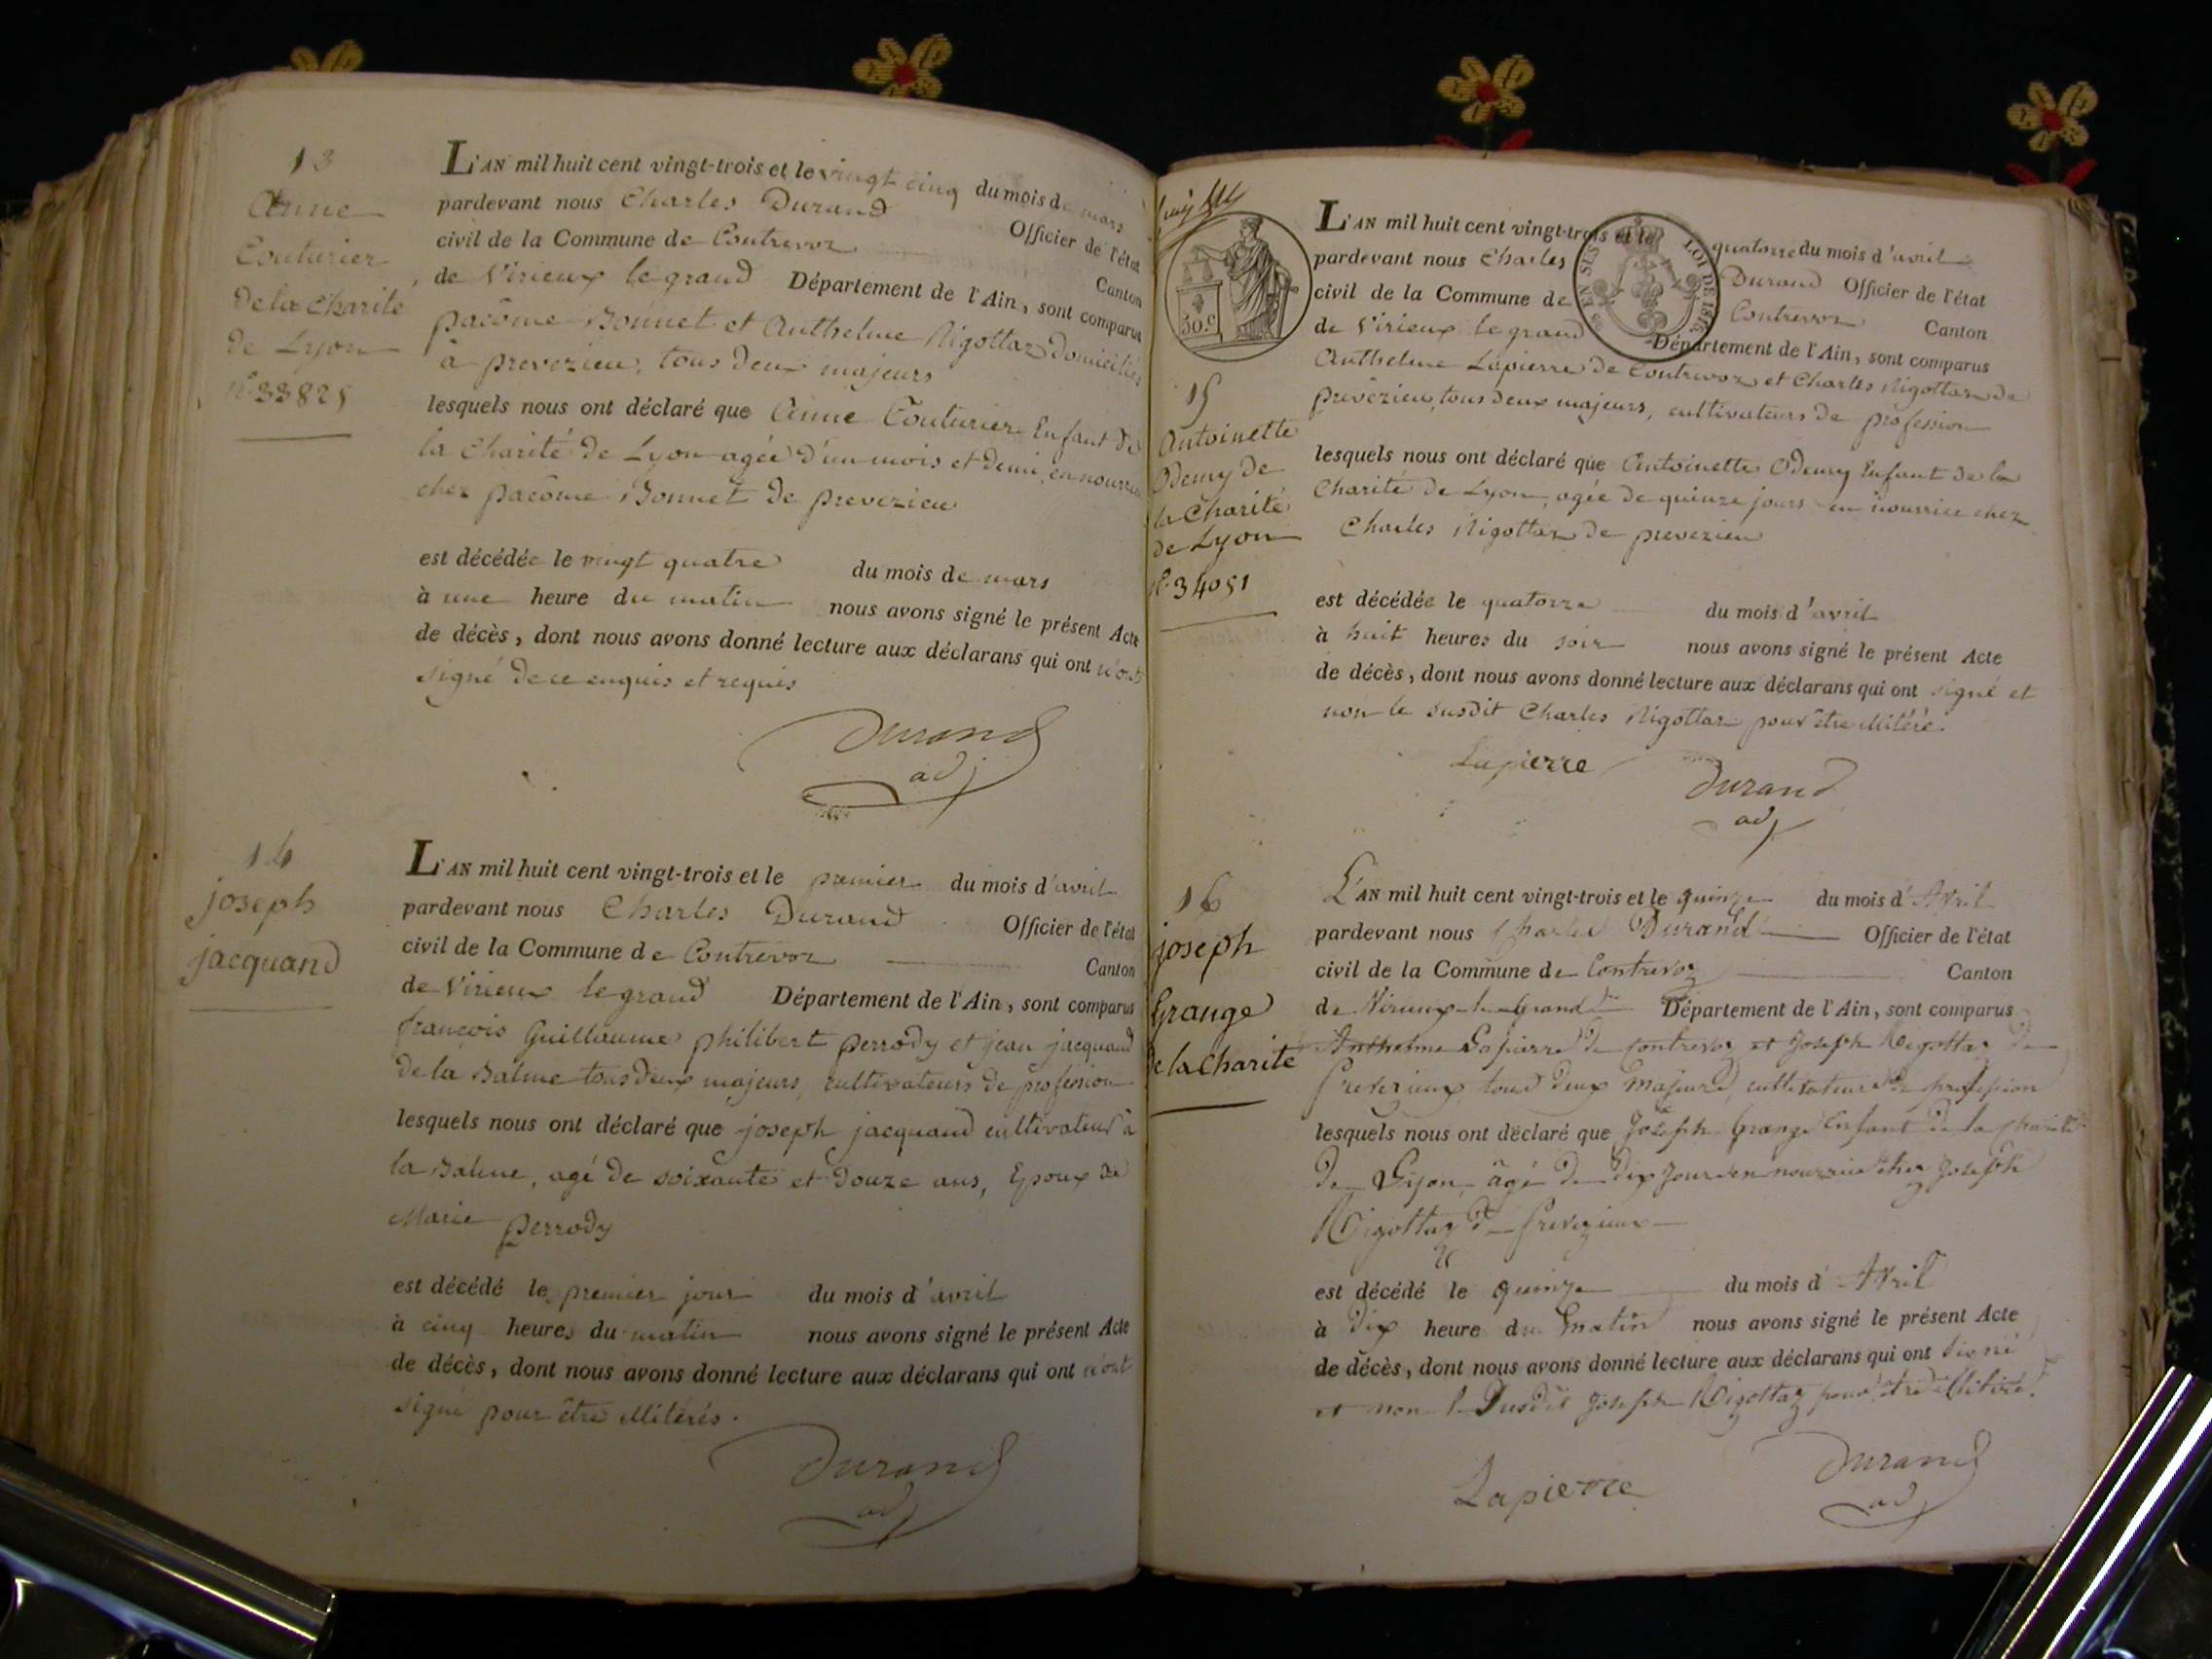 13
Anne
Couturier
de la Charité
de Lyon
n.° 33825
L'AN mil huit cent vingt-trois et le vingt cinq du mois de mars
pardevant nous Charles Durand Officier de l'état
civil de la Commune de Contrevoz Canton
de Virieux le grand Département de l'Ain, sont comparus
pacôme Bonnet et Anthelme Rigottaz domiciliés
à prevezieu, tous deux majeurs
lesquels nous ont déclaré que Anne Couturier Enfant de
la Charité de Lyon agée d'un mois et demi, en nourrice
chez pacôme Bonnet de prevezieu
est décédée le vingt quatre du mois de mars
à une heure du matin nous avons signé le présent Acte
de décès, dont nous avons donné lecture aux déclarans qui ont n'ont
signé de ce enquis et requis
Durand
adj
14
joseph
jacquand
L'AN mil huit cent vingt-trois et le premier du mois d'avril
pardevant nous Charles Durand Officier de l'état
civil de la Commune de Contrevoz Canton
de Virieux le grand Département de l'Ain, sont comparus
françois Guillaume philibert perrody et jean jacquand
de la Balme tous deux majeurs, cultivateurs de profession
lesquels nous ont déclaré que joseph jacquand cultivateur à
la Balme, agé de soixante et douze ans, Epoux de
Marie perrody
est décédé le premier jour du mois d'avril
à cinq heures du matin nous avons signé le présent Acte
de décès, dont nous avons donné lecture aux déclarans qui ont n'ont
signé pour être illitérés.
Durand
adj
50.c
EN SUS
LOI DE 1816.
15
Antoinette
Odemy de
la Charité
de Lyon
n.° 34051
L'AN mil huit cent vingt-trois et le quatorze du mois d'avril
pardevant nous Charles Durand Officier de l'état
civil de la Commune de Contrevoz Canton
de Virieux le grand Département de l'Ain, sont comparus
Anthelme Lapierre de Contrevoz et Charles Rigottaz de
prevezieu, tous deux majeurs, cultivateurs de profession
lesquels nous ont déclaré que Antoinette Odemy Enfant de la
Charité de Lyon, agée de quinze jours en nourrice chez
Charles Rigottaz de prevezieu
est décédée le quatorze du mois d'avril
à huit heures du soir nous avons signé le présent Acte
de décès, dont nous avons donné lecture aux déclarans qui ont signé et
non le susdit Charles Rigottaz pour être illitéré.
Lapierre Durand
adj
16
joseph
Grange
de la Charité
L'AN mil huit cent vingt-trois et le quinze du mois d'Avril
pardevant nous Charles Durand Officier de l'état
civil de la Commune de Contrevoz Canton
de Virieux-le-Grand Département de l'Ain, sont comparus
Anthelme Lapierre de Contrevoz et Joseph Rigottaz de
Prevezieux tous deux Majeurs, cultivateurs de profession
lesquels nous ont déclaré que Joseph Grange Enfant de la Charité
de Lyon, âgé de dix jours en nourrice chez Joseph
Rigottaz de Prevezieux
est décédé le quinze du mois d'Avril
à dix heure du Matin nous avons signé le présent Acte
de décès, dont nous avons donné lecture aux déclarans qui ont signé
et non le Susdit Joseph Rigottaz pour être illitéré.
Lapierre Durand
adj